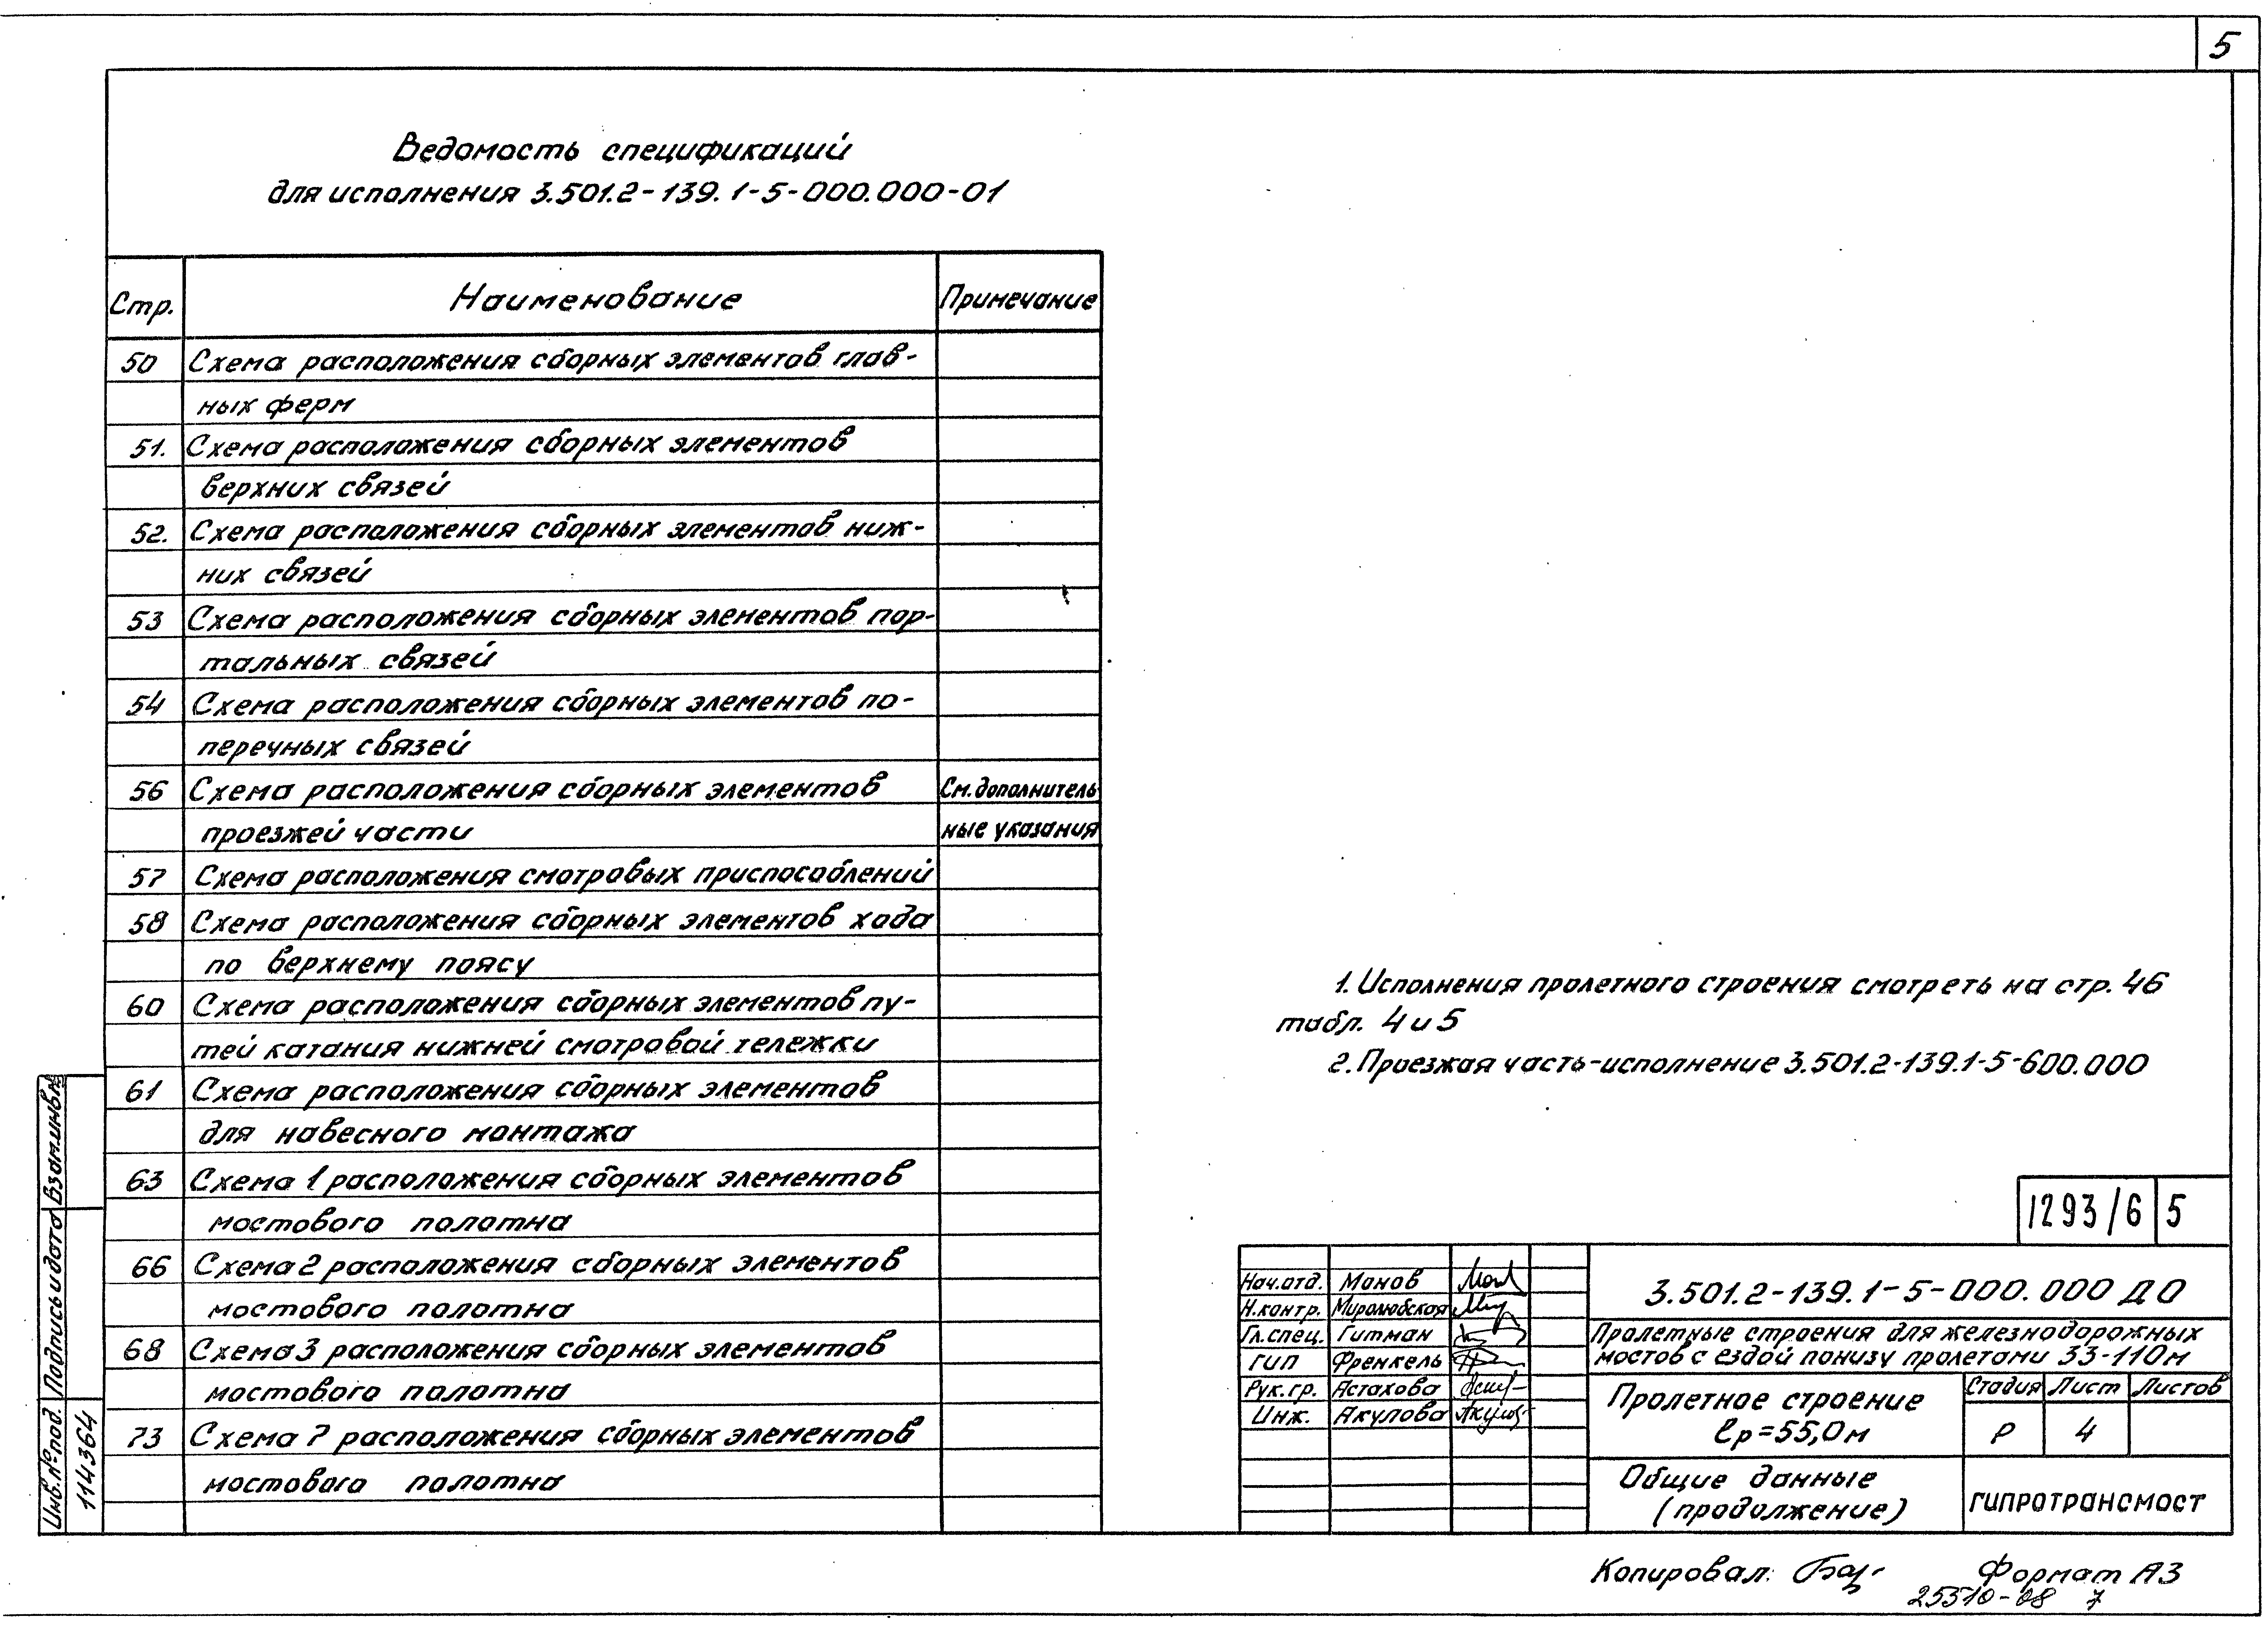 5
Ведомость спецификаций
для исполнения 3.501.2-139.1-5-000.000-01
Стр. Наименование Примечание
50 Схема расположения сборных элементов глав-
ных ферм
51. Схема расположения сборных элементов
верхних связей
52. Схема расположения сборных элементов ниж-
них связей
53 Схема расположения сборных элементов пор-
тальных связей
54 Схема расположения сборных элементов по-
перечных связей
56 Схема расположения сборных элементов См. дополнитель
проезжей части ные указания
57 Схема расположения смотровых приспособлений
58 Схема расположения сборных элементов хода
по верхнему поясу
60 Схема расположения сборных элементов пу-
тей катания нижней смотровой тележки
61 Схема расположения сборных элементов
для навесного монтажа
63 Схема 1 расположения сборных элементов
мостового полотна
66 Схема 2 расположения сборных элементов
мостового полотна
68 Схема 3 расположения сборных элементов
мостового полотна
73 Схема 7 расположения сборных элементов
мостового полотна
1. Исполнения пролетного строения смотреть на стр. 46
табл. 4 и 5
2. Проезжая часть-исполнение 3.501.2-139.1-5-600.000
1293/6 5
Нач.отд. Монов
Н.контр. Миролюбская
Гл.спец. Гитман
ГИП Френкель
Рук.гр. Астахова
Инж. Акулова
3.501.2-139.1-5-000.000 ДО
Пролетные строения для железнодорожных
мостов с ездой понизу пролетами 33-110м
Пролетное строение
lр=55,0м
Стадия Лист Листов
Р 4
Общие данные
(продолжение)
ГИПРОТРАНСМОСТ
Инв.№ под. Подпись и дата Взам.инв.№
114364
Копировал: Формат А3
25310-08 7